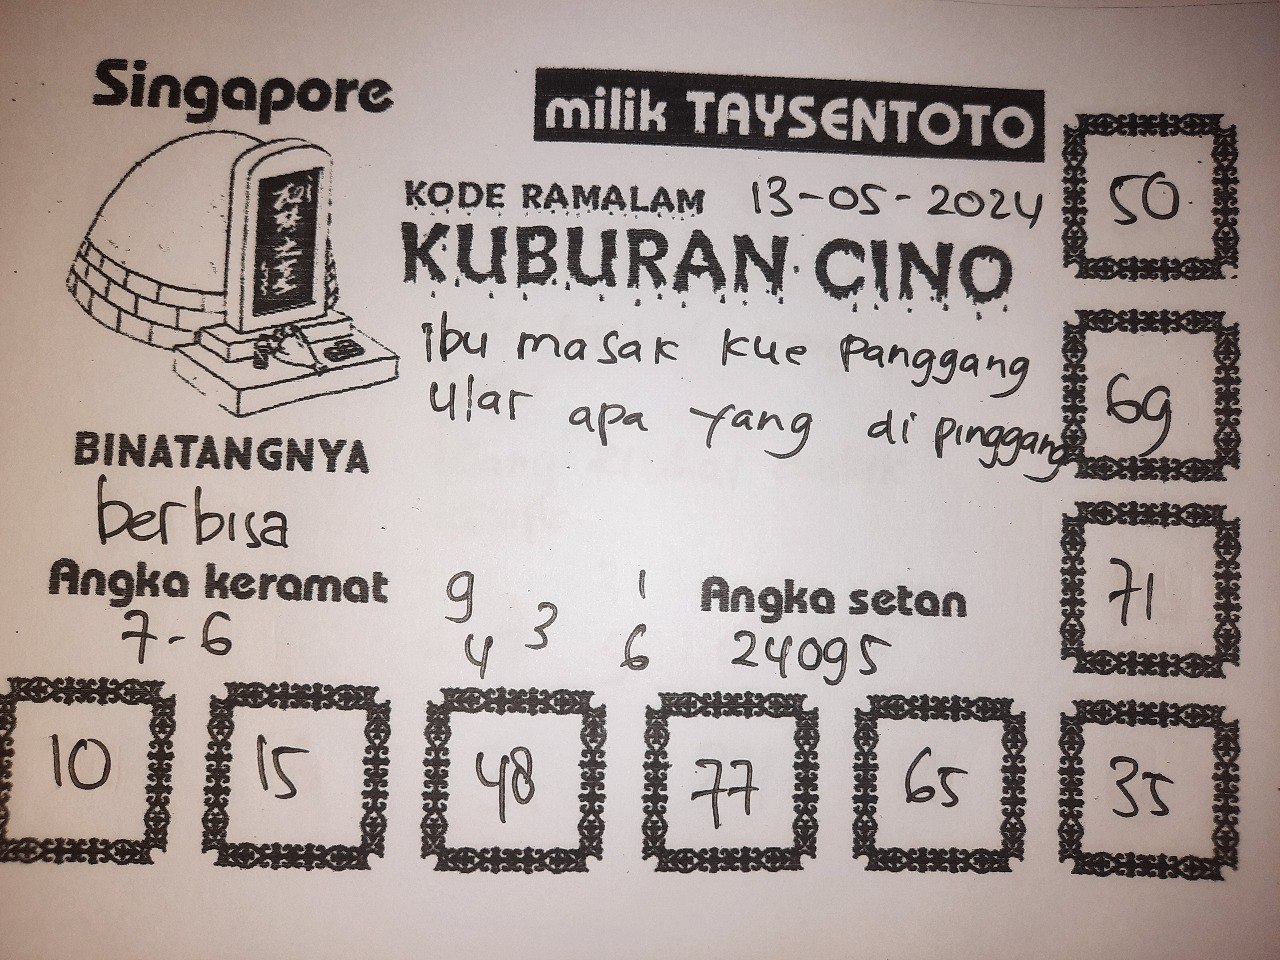 Singapore
milik TAYSENTOTO
KODE RAMALAM 13-05-2024
KUBURAN CINO
50
ibu masak kue panggang
ular apa yang di pinggang
69
BINATANGNYA
berbisa
Angka keramat
7-6
9 1
3
4 6
Angka setan
24095
71
10 15 48 77 65 35